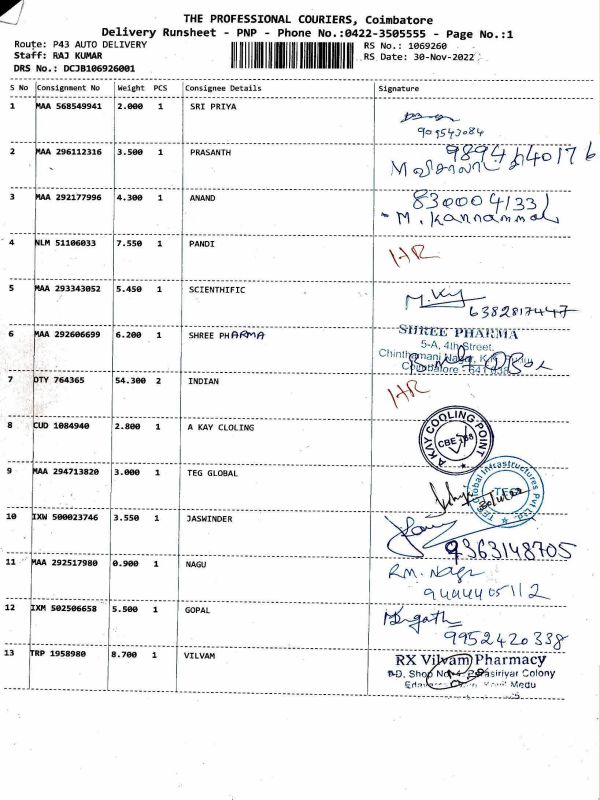 THE PROFESSIONAL COURIERS, Coimbatore
Delivery Runsheet - PNP - Phone No.:0422-3505555 - Page No.:1
Route: P43 AUTO DELIVERY RS No.: 1069260
Staff: RAJ KUMAR RS Date: 30-Nov-2022
DRS No.: DCJB106926001
S No Consignment No Weight PCS Consignee Details Signature
1 MAA 568549941 2.000 1 SRI PRIYA
909543084
2 MAA 296112316 3.500 1 PRASANTH
3 MAA 292177996 4.300 1 ANAND
M. Kannammal
4 NLM 51106033 7.550 1 PANDI HR
5 MAA 293343052 5.450 1 SCIENTHIFIC
6382817447
6 MAA 292606699 6.200 1 SHREE PHARMA SHREE PHARMA
5-A, 4th Street,
Coimbatore
7 DTY 764365 54.300 2 INDIAN HR
8 CUD 1084940 2.800 1 A KAY CLOLING A KAY COOLING POINT
CBE
9 MAA 294713820 3.000 1 TEG GLOBAL TEG Global Infrastructures Pvt Ltd.
TEG
10 IXW 500023746 3.550 1 JASWINDER
9363148705
11 MAA 292517980 0.900 1 NAGU RM. Nagu
9444405112
12 IXM 502506658 5.500 1 GOPAL
9952420338
13 TRP 1958980 8.700 1 VILVAM RX Vilvam Pharmacy
Shop Colony
Medu